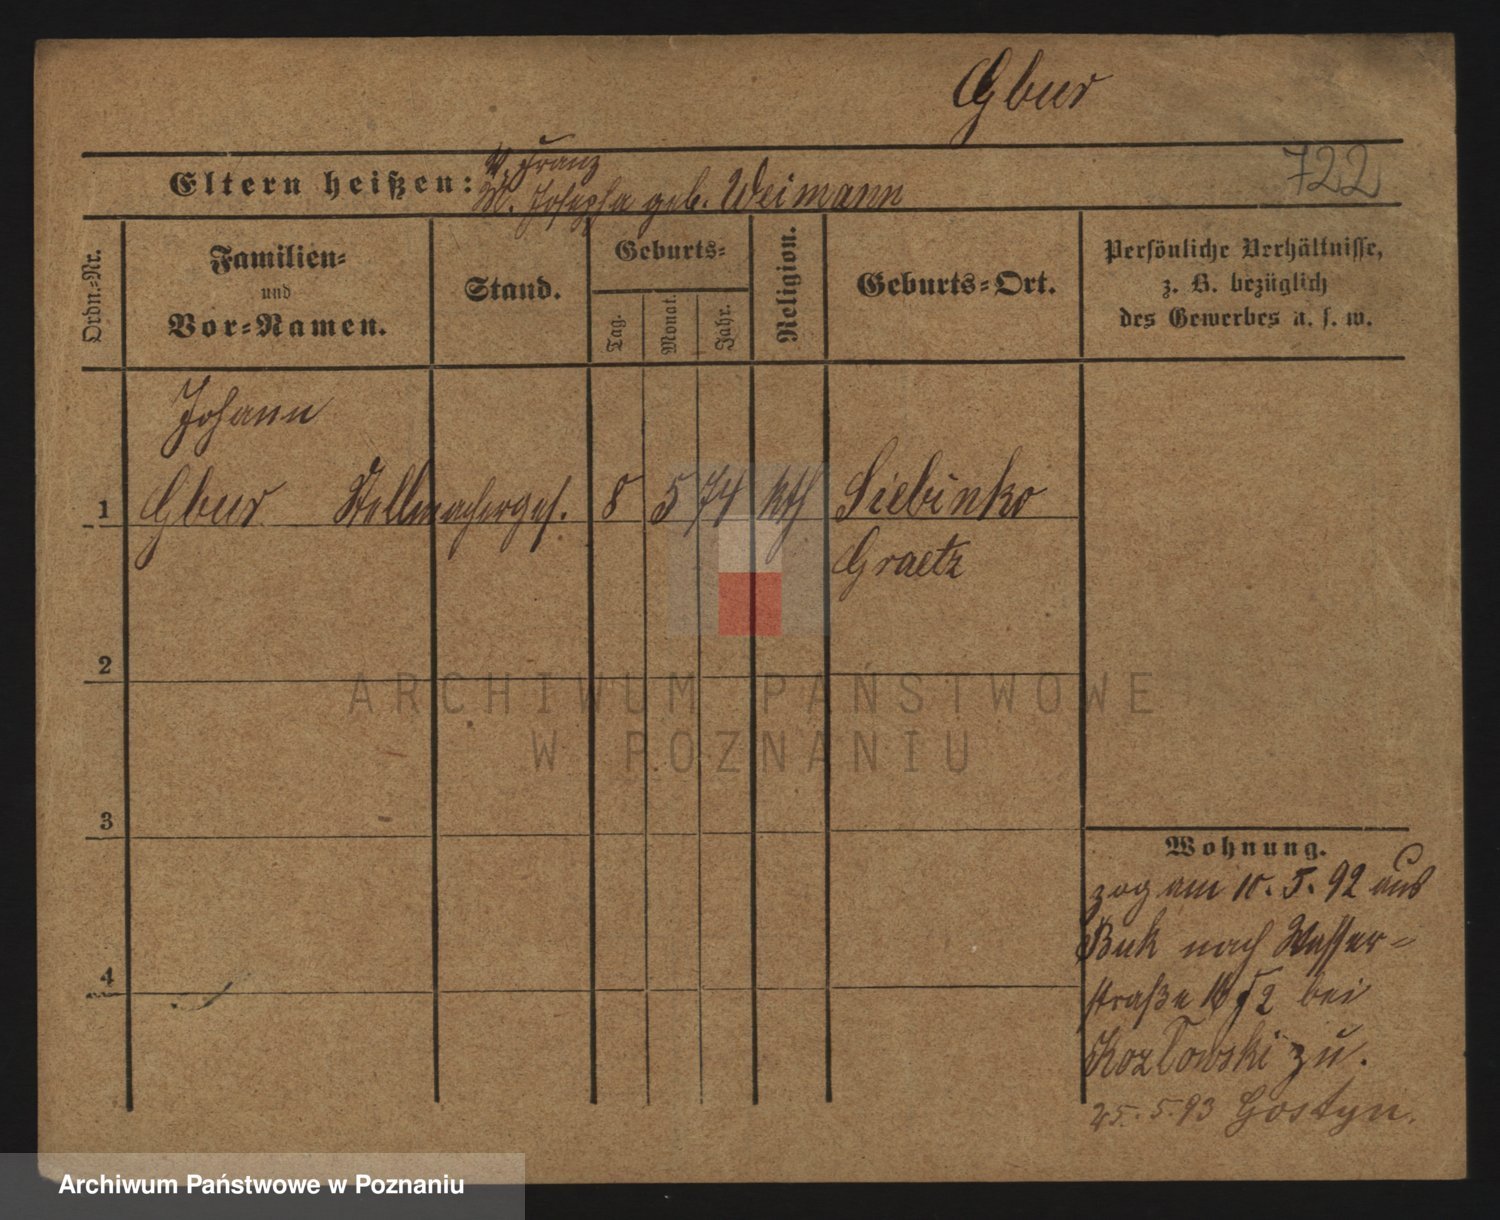 Gbur
V. Franz
Eltern heißen: M. Josepha geb. Weimann
722
Ordn.-Nr.
Familien-
und
Vor-Namen.
Stand.
Geburts-
Tag.
Monat.
Jahr.
Religion.
Geburts-Ort.
Persönliche Verhältnisse,
z. B. bezüglich
des Gewerbes u. s. w.
Johann
1 Gbur Stellmacherges. 8 5 74 kth Siebinko
Graetz
2
3
4
Wohnung.
zog am 10. 5. 92 aus
Buk nach Wasser-
straße bei
Kozlowski zu.
25. 5. 93 Gostyn.
ARCHIWUM PAŃSTWOWE
W POZNANIU
Archiwum Państwowe w Poznaniu